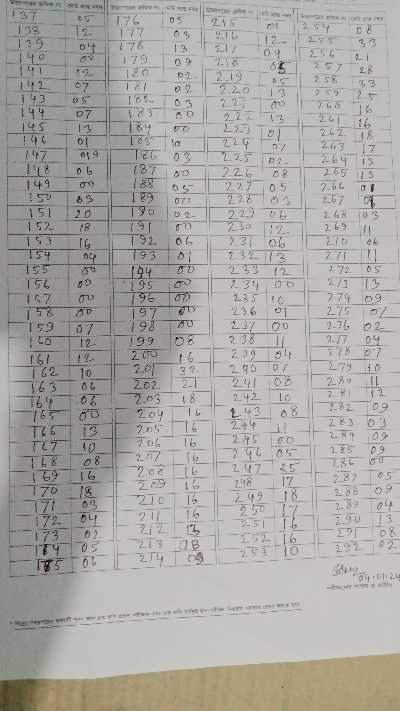 137 05 176 05 215 01 254 08
138 12 177 03 216 12 255 33
139 04 178 13 217 04 256 21
140 00 179 09 218 05 257 28
141 12 180 02 219 05 258 33
142 07 181 02 220 13 259 25
143 05 182 03 221 00 260 16
144 07 183 00 222 13 261 16
145 13 184 00 223 01 262 18
146 01 185 10 224 07 263 17
147 186 03 225 02 264 13
148 06 187 00 226 08 265 13
149 00 188 05 227 05 266
150 189 00 228 03 267
151 20 190 02 229 06 268 03
152 18 191 00 230 12 269 11
153 16 192 06 231 06 270 06
154 04 193 01 232 13 271 11
155 00 194 00 233 12 272 05
156 00 195 00 234 00 273 13
157 00 196 00 235 10 274 09
158 00 197 00 236 01 275
159 07 198 00 237 00 276 02
160 12 199 08 238 11 277 04
161 12 200 16 239 04 278 07
162 10 201 32 240 07 279 10
163 06 202 21 241 08 280 11
164 06 203 18 242 10 281 12
165 00 204 16 243 08 282 09
166 13 205 16 244 11 283 03
167 10 206 16 245 00 284 09
168 08 207 16 246 05 285 09
169 16 208 16 247 25 286 00
170 18 209 16 248 17 287 05
171 03 210 16 249 18 288 09
172 04 211 16 250 17 289 04
173 02 212 251 16 290 13
174 05 213 252 16 291 08
175 06 214 253 10 292 02